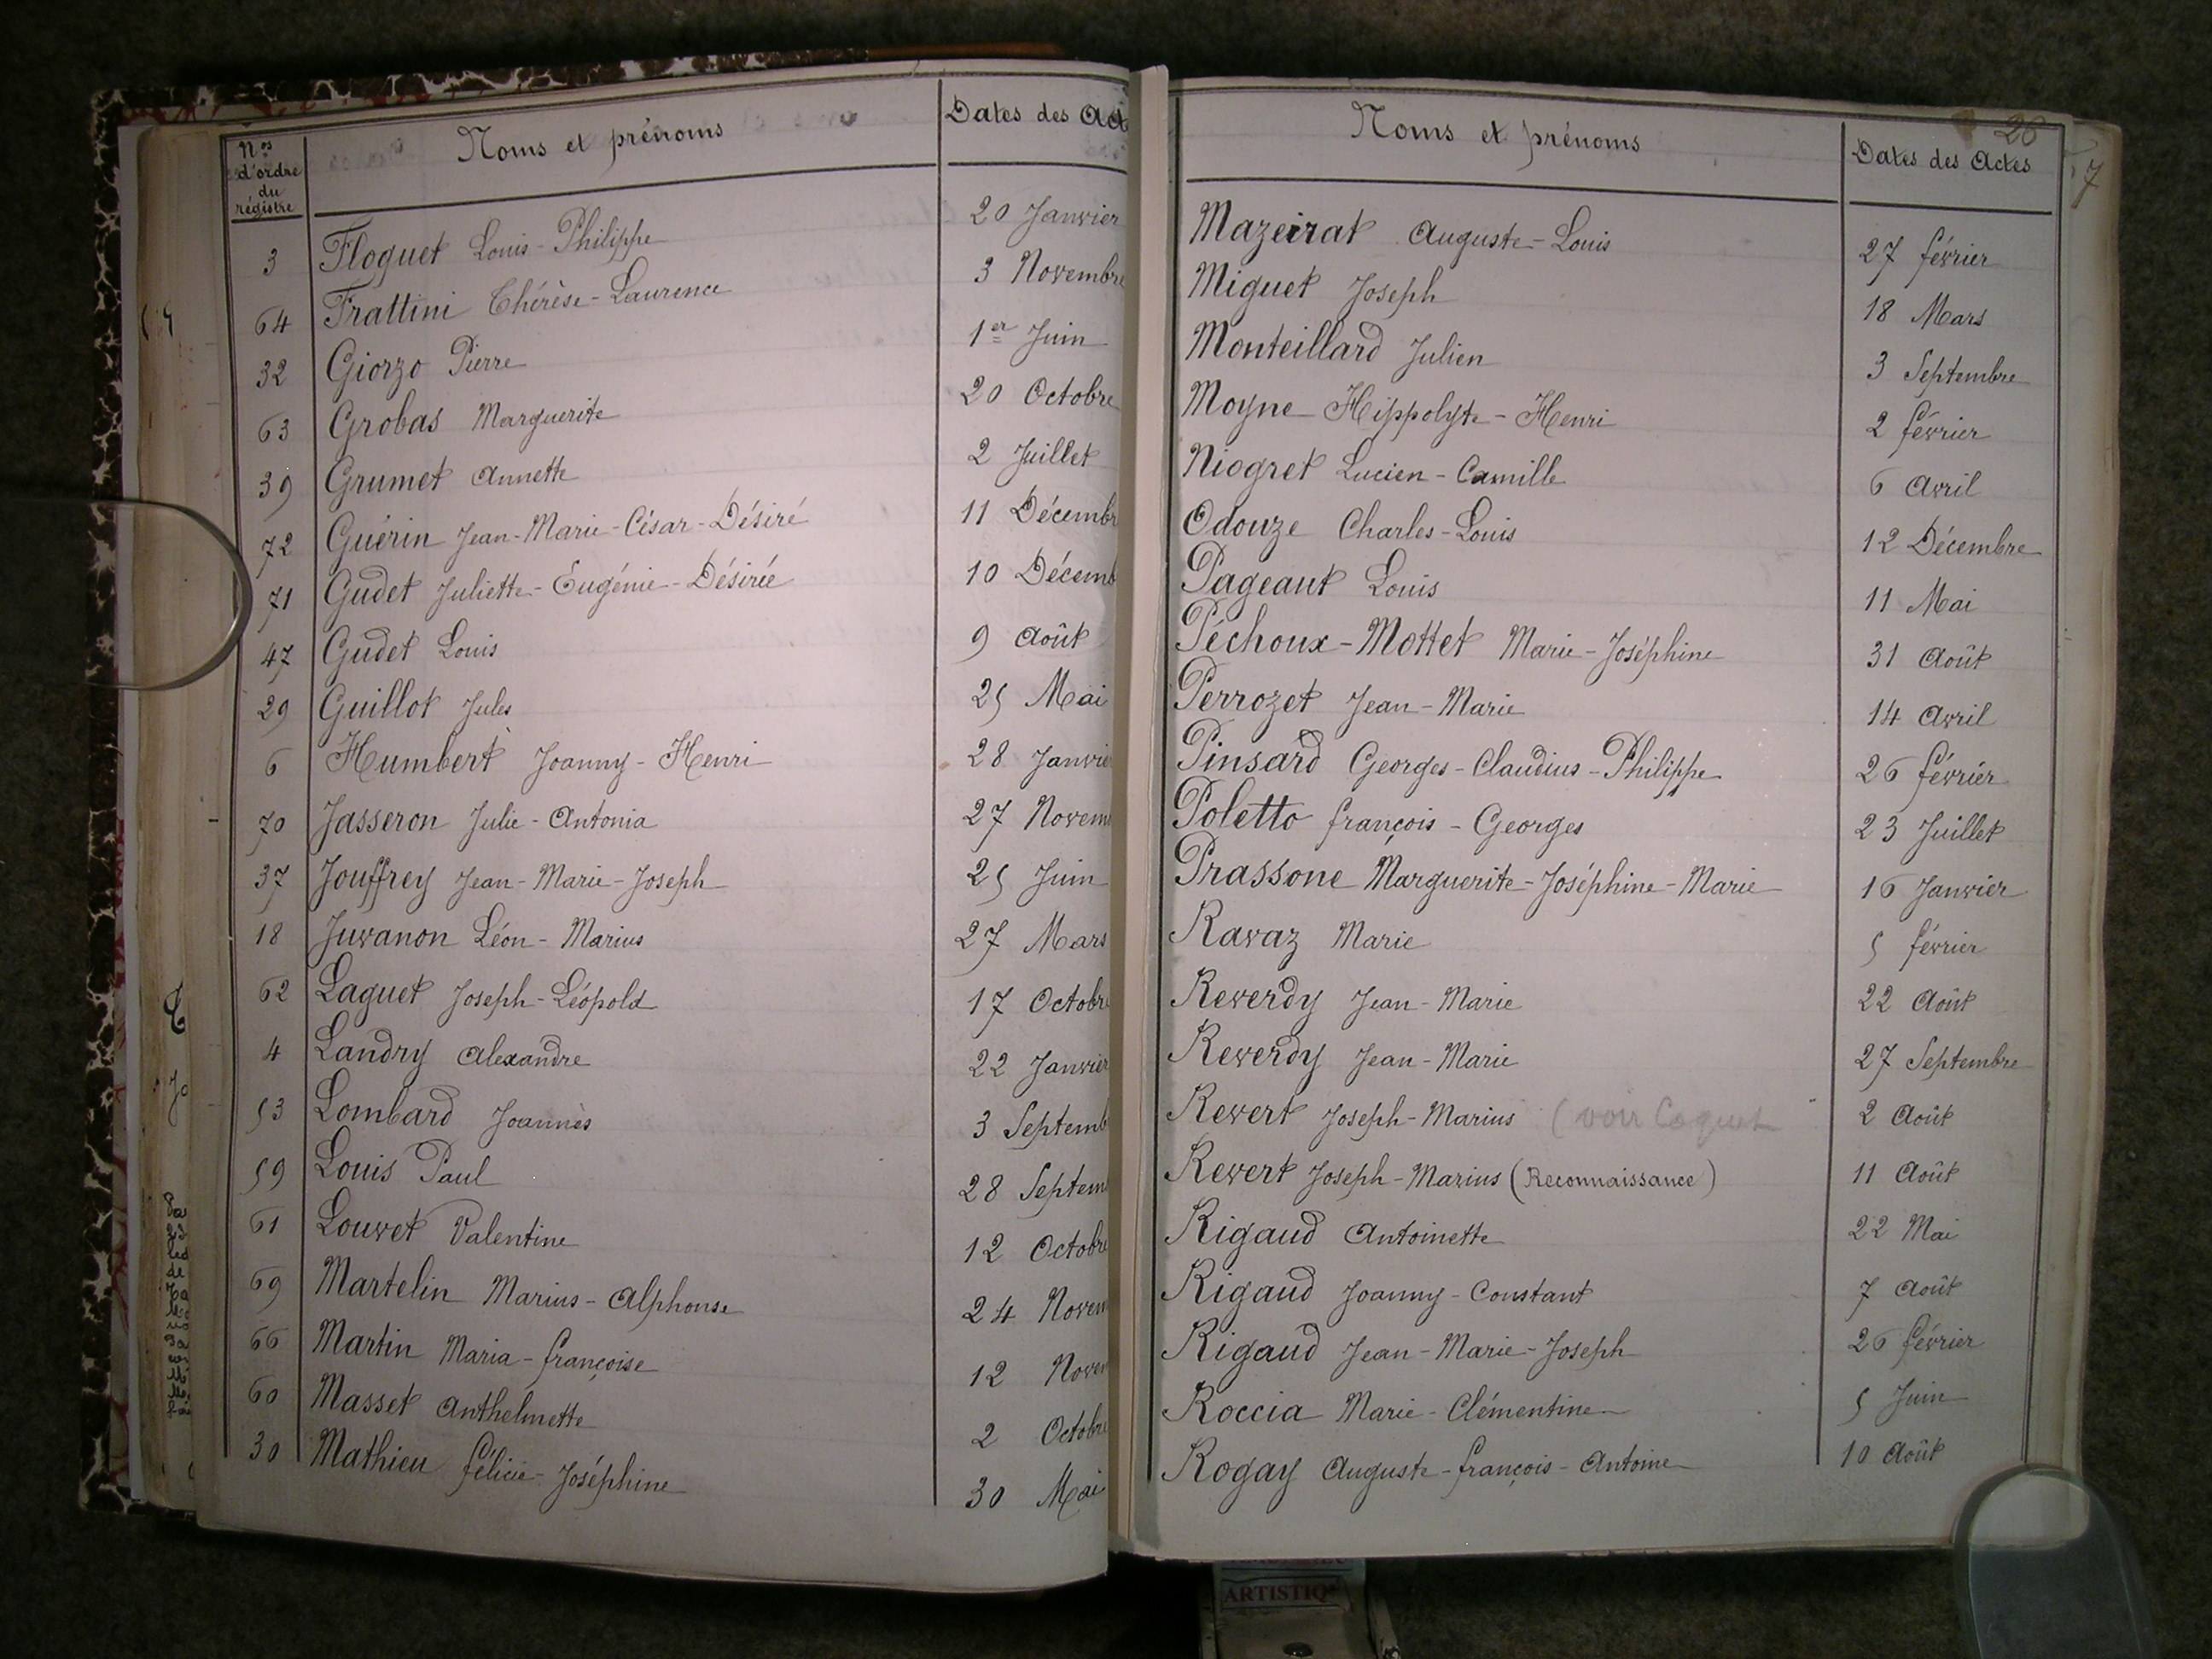 Nos d'ordre du régistre
Noms et prénoms
Dates des Act
3 Floquet Louis-Philippe 20 Janvier
64 Frattini Thérèse-Laurence 3 Novembre
32 Giorzo Pierre 1er Juin
63 Grobas Marguerite 20 Octobre
39 Grumet Annette 2 Juillet
72 Guérin Jean-Marie-César-Désiré 11 Décembr
71 Gudet Juliette-Eugénie-Désirée 10 Décemb
47 Gudet Louis 9 Août
29 Guillot Jules 25 Mai
6 Humbert Joanny-Henri 28 Janvie
70 Jasseron Julie-Antonia 27 Novem
37 Jouffrey Jean-Marie-Joseph 25 Juin
18 Juvanon Léon-Marius 27 Mars
62 Laguet Joseph-Léopold 17 Octobre
4 Landry Alexandre 22 Janvier
53 Lombard Joannès 3 Septemb
59 Louis Paul 28 Septem
61 Louvet Valentine 12 Octobre
69 Martelin Marius-Alphonse 24 Novem
66 Martin Maria-françoise 12 Novem
60 Masset Anthelmette 2 Octobre
30 Mathieu félicie-Joséphine 30 Mai
28
7
Noms et prénoms
Dates des Actes
Mazeirat Auguste-Louis 27 février
Miguet Joseph 18 Mars
Monteillard Julien 3 Septembre
Moyne Hippolyte-Henri 2 février
Niogret Lucien-Camille 6 Avril
Odouze Charles-Louis 12 Décembre
Pageaut Louis 11 Mai
Péchoux-Mottet Marie-Joséphine 31 Août
Perrozet Jean-Marie 14 Avril
Pinsard Georges-Claudius-Philippe 26 février
Poletto françois-Georges 23 Juillet
Prassone Marguerite-Joséphine-Marie 16 Janvier
Ravaz Marie 5 février
Reverdy Jean-Marie 22 Août
Reverdy Jean-Marie 27 Septembre
Revert Joseph-Marius (voir Coquet 2 Août
Revert Joseph-Marius (Reconnaissance) 11 Août
Rigaud Antoinette 22 Mai
Rigaud Joanny-Constant 7 Août
Rigaud Jean-Marie-Joseph 26 février
Roccia Marie-Clémentine 5 Juin
Rogay Auguste-françois-Antoine 10 Août
ARTISTIQ